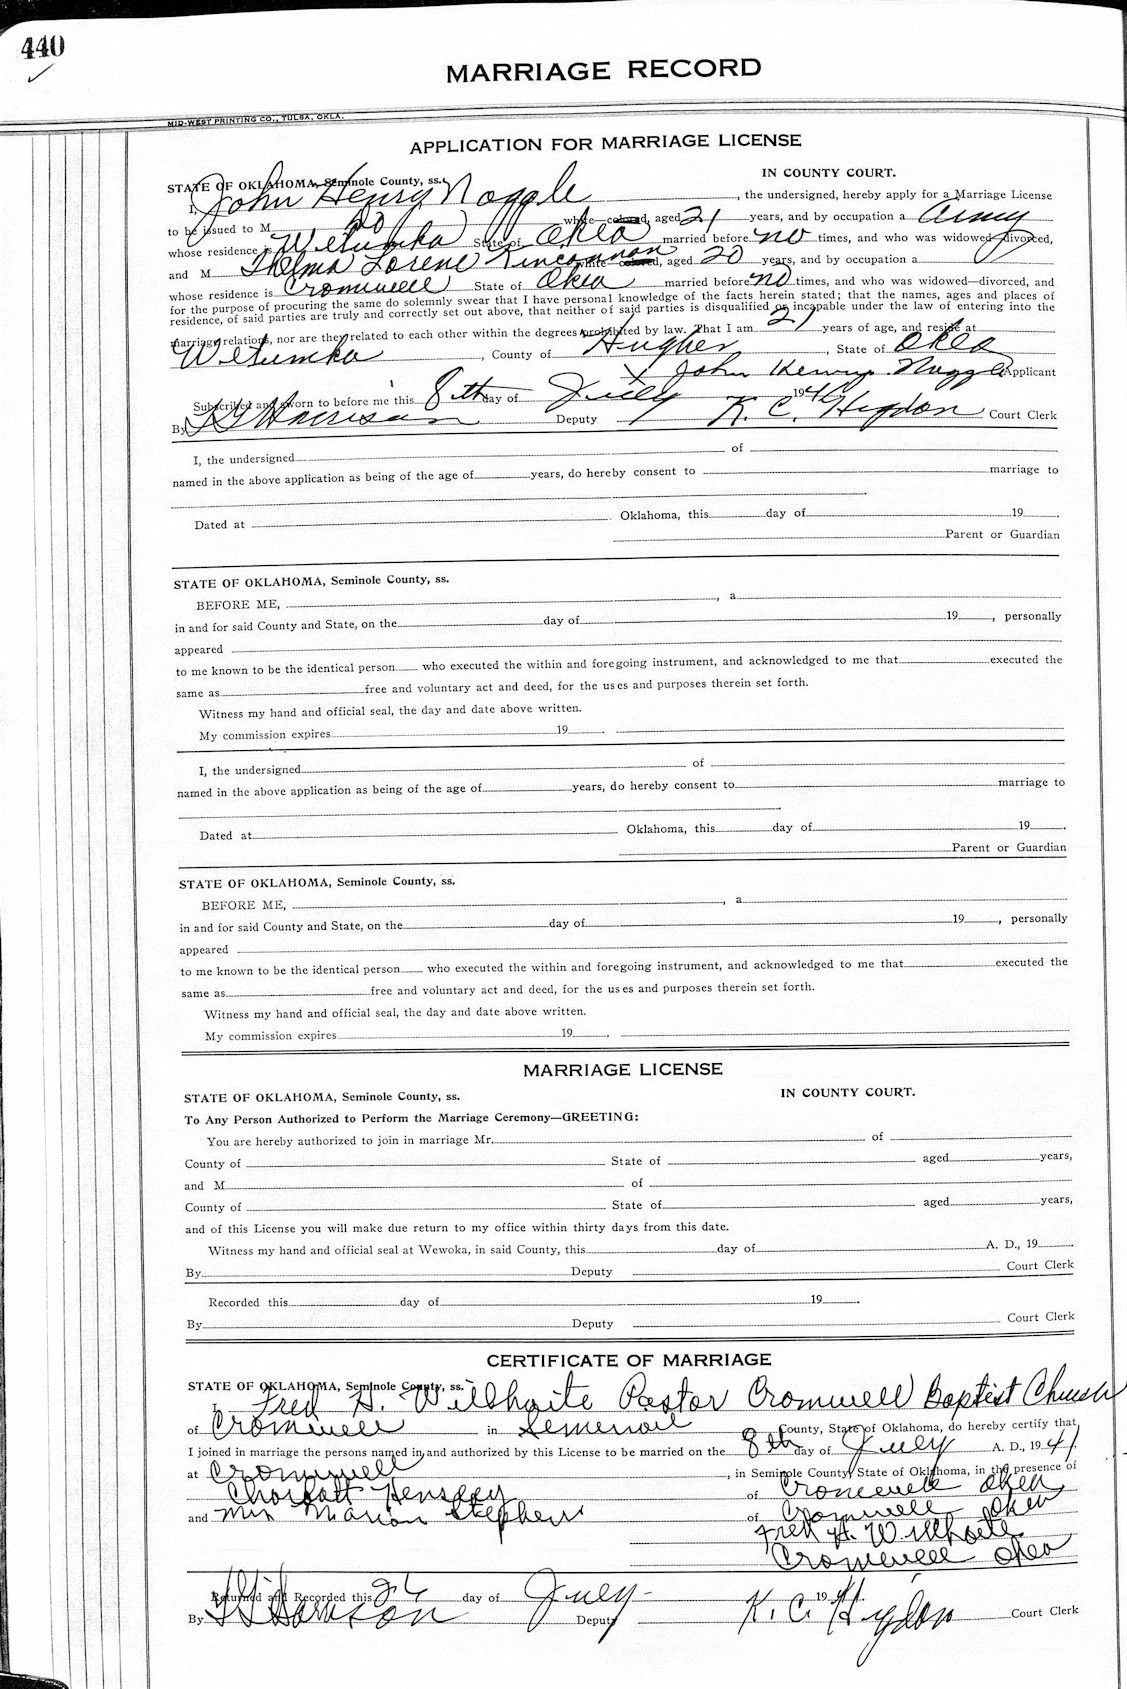 440
MARRIAGE RECORD
MID-WEST PRINTING CO., TULSA, OKLA.
APPLICATION FOR MARRIAGE LICENSE
STATE OF OKLAHOMA, Seminole County, ss. IN COUNTY COURT.
I, John Henry Noggle, the undersigned, hereby apply for a Marriage License
to be issued to M white colored, aged 21 years, and by occupation a Army
whose residence is Wetumka State of Okla married before no times, and who was widowed—divorced,
and M Thelma Lorene Kincannon white colored, aged 20 years, and by occupation a
whose residence is Cromwell State of Okla married before no times, and who was widowed—divorced, and
for the purpose of procuring the same do solemnly swear that I have personal knowledge of the facts herein stated; that the names, ages and places of
residence, of said parties are truly and correctly set out above, that neither of said parties is disqualified or incapable under the law of entering into the
marriage relations, nor are they related to each other within the degrees prohibited by law. That I am 21 years of age, and reside at
Wetumka, County of Hughes, State of Okla
X John Henry Noggle Applicant
Subscribed and sworn to before me this 8th day of July 19
By Harrison Deputy K. C. Hydon Court Clerk
I, the undersigned of
named in the above application as being of the age of years, do hereby consent to marriage to
Dated at Oklahoma, this day of 19
Parent or Guardian
STATE OF OKLAHOMA, Seminole County, ss.
BEFORE ME, , a
in and for said County and State, on the day of 19 , personally
appeared
to me known to be the identical person who executed the within and foregoing instrument, and acknowledged to me that executed the
same as free and voluntary act and deed, for the uses and purposes therein set forth.
Witness my hand and official seal, the day and date above written.
My commission expires 19 .
I, the undersigned of
named in the above application as being of the age of years, do hereby consent to marriage to
Dated at Oklahoma, this day of 19 .
Parent or Guardian
STATE OF OKLAHOMA, Seminole County, ss.
BEFORE ME, , a
in and for said County and State, on the day of 19 , personally
appeared
to me known to be the identical person who executed the within and foregoing instrument, and acknowledged to me that executed the
same as free and voluntary act and deed, for the uses and purposes therein set forth.
Witness my hand and official seal, the day and date above written.
My commission expires 19
MARRIAGE LICENSE
STATE OF OKLAHOMA, Seminole County, ss. IN COUNTY COURT.
To Any Person Authorized to Perform the Marriage Ceremony—GREETING:
You are hereby authorized to join in marriage Mr. of
County of State of aged years,
and M of
County of State of aged years,
and of this License you will make due return to my office within thirty days from this date.
Witness my hand and official seal at Wewoka, in said County, this day of A. D., 19 .
By Deputy Court Clerk
Recorded this day of 19 .
By Deputy Court Clerk
CERTIFICATE OF MARRIAGE
STATE OF OKLAHOMA, Seminole County, ss.
I, Fred A. Wilhoite Pastor Cromwell Baptist Church
of Cromwell in Seminole County, State of Oklahoma, do hereby certify that
I joined in marriage the persons named in and authorized by this License to be married on the 8th day of July A. D., 1941
at Cromwell, in Seminole County State of Oklahoma, in the presence of
Hensley of Cromwell Okla
and Mrs Marion Stephens of Cromwell Okla
Fred A. Wilhoite
Cromwell Okla
Returned and Recorded this 26 day of July 1941
By Harrison Deputy K. C. Hydon Court Clerk